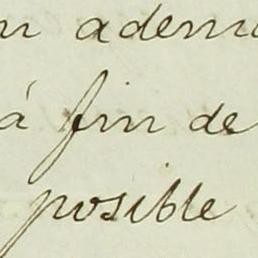 adem
á fin de
posible